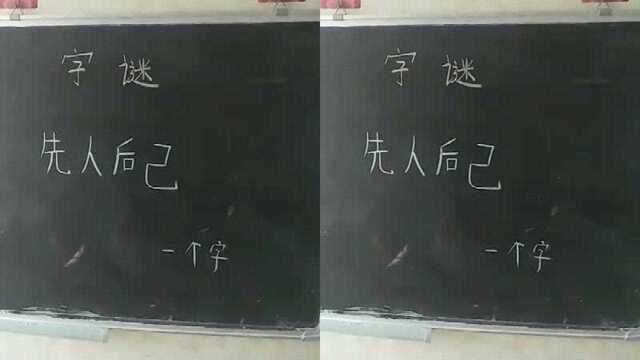 字谜
先人后己
一个字
字谜
先人后己
一个字